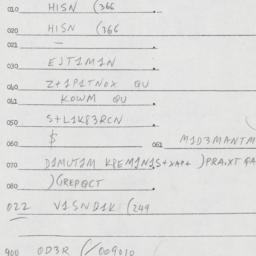 010 HISN (366
020 HISN (366
021 —
030 EJT1M1N
040 Z+1P1TNOX QU
041 KOWM QU
050 S+L1K83RCN
060 $ 061 M1D3MANTM
070 D1MUT1M KPEM1N1S+XAP+ )PRA.XT
080 )GREPQCT
022 V1SND1K (249
900 OD3R (/009010